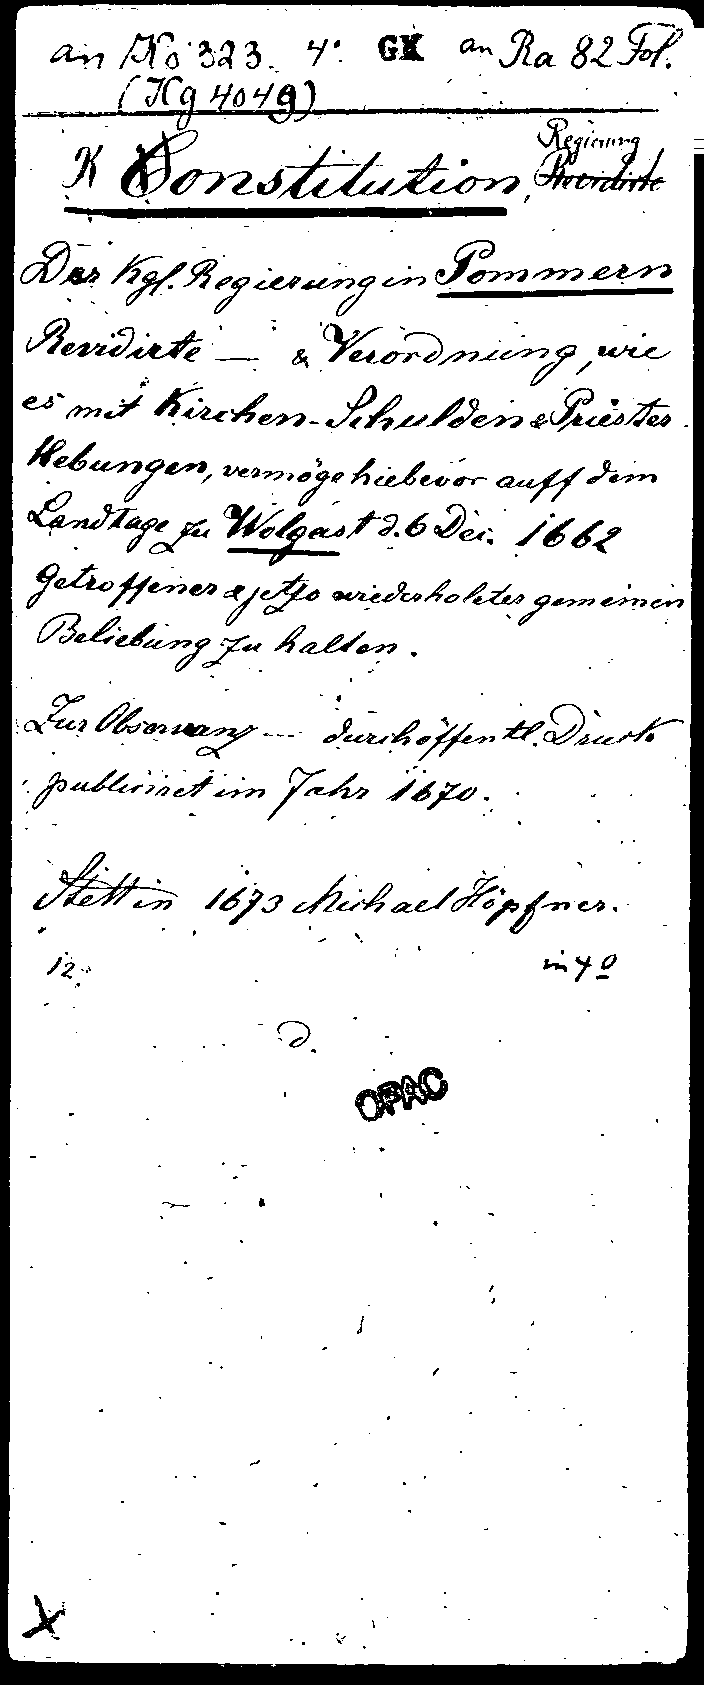 an Ko 323. 4°. GK an Ra 82 Fol.
(Kg 4049)
K Constitution, Regierung Revidirte
Der Kgl. Regierung in Pommern
Revidirte — & Verordnung, wie
es mit Kirchen-Schulden & Priester
Hebungen, vermöge hiebevor auff dem
Landtage zu Wolgast d. 6 Dec. 1662
getroffener & jetzo wiederholeter gemeinen
Beliebung zu halten.
Zur Observanz — durch öffentl. Druck
publiciret im Jahr 1670.
Stettin 1673 Michael Höpfner.
12. in 4°
d.
OPAC
X